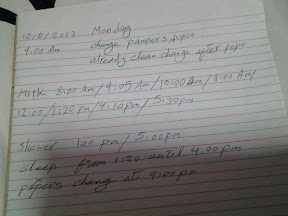 10/6/2012 Monday
9:00 Am change pampers, popo
already clean change after popo
Milk 8:00 Am / 9:05 Am / 10:00 Am / 11:00 Am/
12:00 / 1:20 pm / 4:10 pm / 5:30 pm
Shower 1:00 pm / 5:00 pm
sleep from 1:20 until 4:00 pm
papers change at 4:00 pm